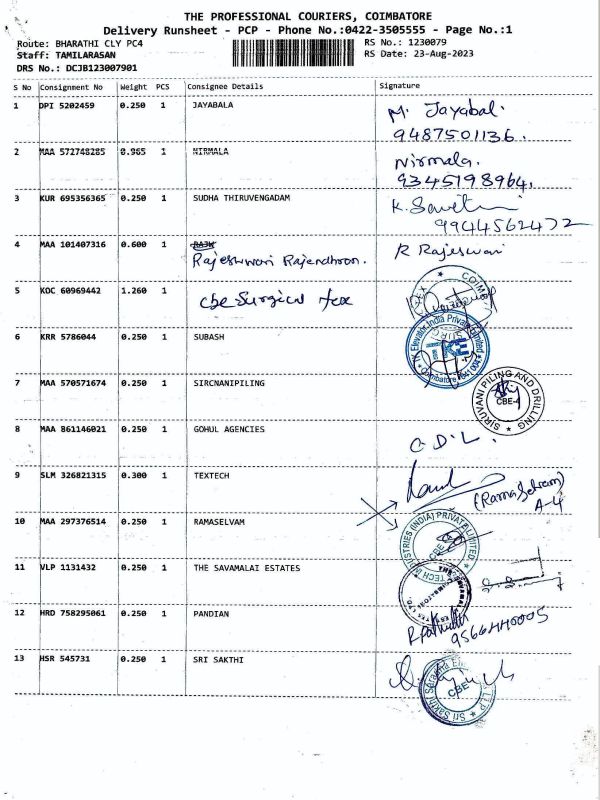 THE PROFESSIONAL COURIERS, COIMBATORE
Delivery Runsheet - PCP - Phone No.:0422-3505555 - Page No.:1
Route: BHARATHI CLY PC4 RS No.: 1230079
Staff: TAMILARASAN RS Date: 23-Aug-2023
DRS No.: DCJB123007901
S No Consignment No Weight PCS Consignee Details Signature
1 DPI 5202459 0.250 1 JAYABALA M. Jayabal.
9487501136.
2 MAA 572748285 0.965 1 NIRMALA Nirmala.
9345198964.
3 KUR 695356365 0.250 1 SUDHA THIRUVENGADAM
9944562472
4 MAA 101407316 0.600 1 R Rajeswari
Rajeshwari Rajendhran.
5 KOC 60969442 1.260 1 cbe Surgical COIMBA
6 KRR 5786044 0.250 1 SUBASH Elevator India Private Limited
Coimbatore
7 MAA 570571674 0.250 1 SIRCNANIPILING SIRUVANI PILING AND DRILLING
CBE-4
8 MAA 861146021 0.250 1 GOHUL AGENCIES
9 SLM 326821315 0.300 1 TEXTECH
A-4
10 MAA 297376514 0.250 1 RAMASELVAM TECH INDUSTRIES (INDIA) PRIVATE LIMITED
CBE
11 VLP 1131432 0.250 1 THE SAVAMALAI ESTATES
12 HRD 758295061 0.250 1 PANDIAN
9566440005
13 HSR 545731 0.250 1 SRI SAKTHI Sri Sakthi
CBE